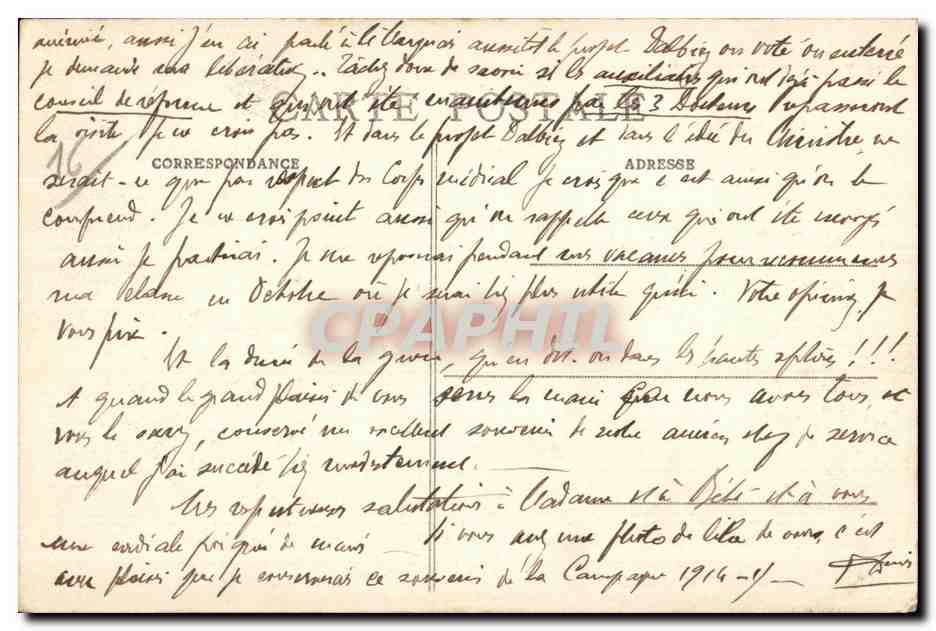 aussi j'en ai parlé à le projet Dalbiez ou voté ou enterré
je demande ma libération.. Tâchez donc de savoir si les auxiliaires qui ont déjà passé le
conseil de réforme et qui ont été examinés par les 3 Docteurs repasseront
CARTE POSTALE
la visite. Je ne crois pas. Et dans le projet Dalbiez et dans l'idée du Ministre, ne
16
CORRESPONDANCE
ADRESSE
serait-ce que par respect du Corps médical je crois que c'est ainsi qu'on le
comprend. Je ne crois point aussi qu'on rappelle ceux qui ont été
aussi je partirai. Je me reposerai pendant mes vacances pour recommencer
ma classe en Octobre où je serai bien plus utile qu'ici. Votre opinion, je
vous prie.
CPAPHIL
Et la durée de la guerre, qu'en dit-on dans les hautes sphères!!!
et quand le grand plaisir de vous serrer la main que nous avons tous, et
vous le savez, conservé un excellent souvenir de notre ancien chef de service
auquel j'ai succédé bien modestement.
Mes respectueuses salutations à Madame et à Bébé et à vous
une cordiale poignée de main
Si vous avez une photo de de vous c'est
avec plaisir que je conserverais ce souvenir de la Campagne 1914-15